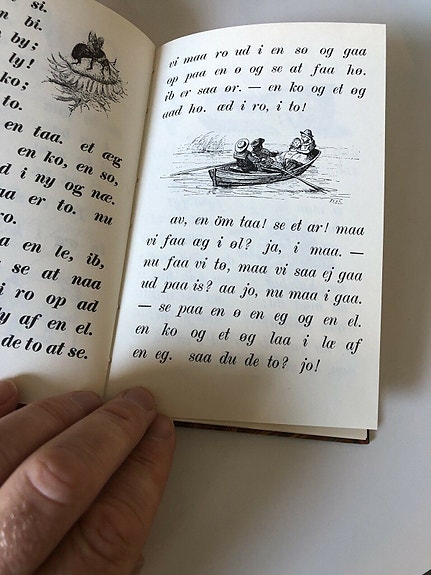 si.
n bi.
n by;
n ly!
ko;
to.
en taa. et æg
en ko, en so,
d i ny og næ.
aa er to. nu
ro.
a en le, ib,
se at naa
i ro op ad
y af en el.
de to at se.
vi maa ro ud i en sø og gaa
op paa en ø og se at faa hø.
ib er saa ør. — en ko og et øg
aad hø. æd i ro, i to!
av, en öm taa! se et ar! maa
vi faa æg i øl? ja, i maa. —
nu faa vi tø, maa vi saa ej gaa
ud paa is? aa jo, nu maa i gaa.
— se paa en ø en eg og en el.
en ko og et øg laa i læ af
en eg. saa du de to? jo!